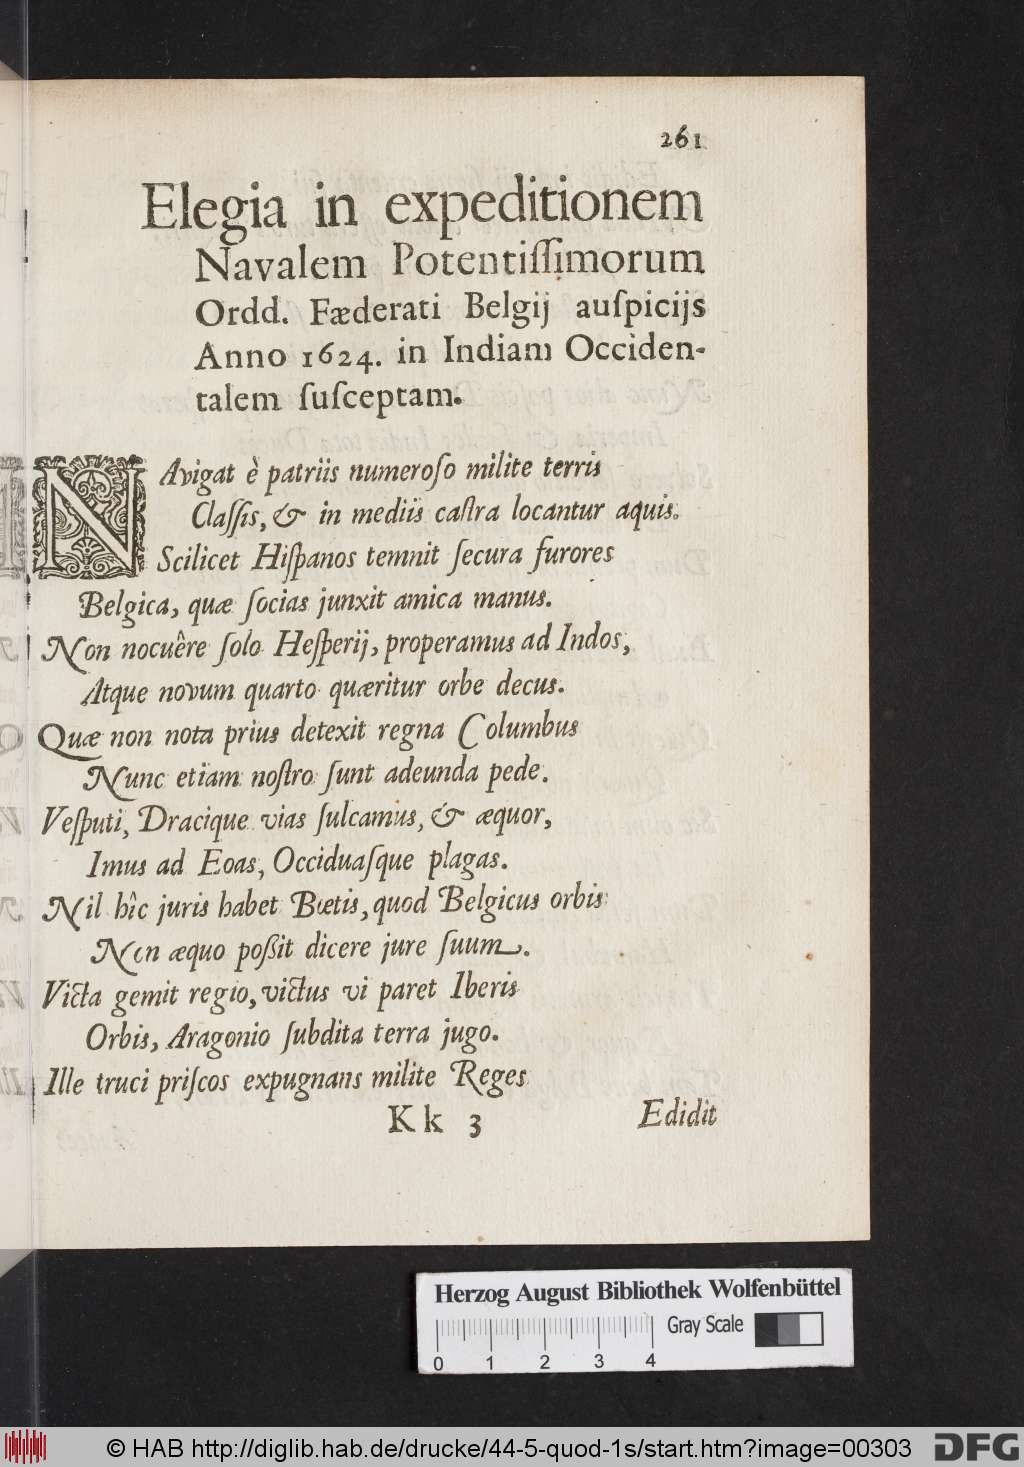 261
Elegia in expeditionem
Navalem Potentiſſimorum
Ordd. Fæderati Belgij auſpicijs
Anno 1624. in Indiam Occiden-
talem ſuſceptam.
NAvigat è patriis numeroſo milite terris
Claſſis, & in mediis caſtra locantur aquis.
Scilicet Hiſpanos temnit ſecura furores
Belgica, quæ ſocias junxit amica manus.
Non nocuêre ſolo Heſperij, properamus ad Indos,
Atque novum quarto quæritur orbe decus.
Quæ non nota prius detexit regna Columbus
Nunc etiam noſtro ſunt adeunda pede.
Veſputi, Dracique vias ſulcamus, & æquor,
Imus ad Eoas, Occiduaſque plagas.
Nil hîc juris habet Bœtis, quod Belgicus orbis
Non æquo poßit dicere jure ſuum.
Victa gemit regio, victus vi paret Iberis
Orbis, Aragonio ſubdita terra jugo.
Ille truci priſcos expugnans milite Reges
Kk 3 Edidit
Herzog August Bibliothek Wolfenbüttel
Gray Scale
0 1 2 3 4
© HAB http://diglib.hab.de/drucke/44-5-quod-1s/start.htm?image=00303
DFG